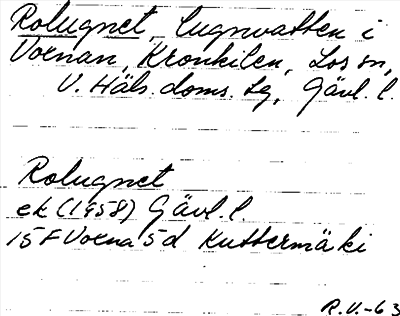 Rolugnet, lugnvatten i
Voxnan, Kronkilen, Los sn,
V. Häls. doms. tg, Gävl. l.
Rolugnet
ek (1958) Gävl. l.
15F Voxna 5d Kuttermäki
R.V.-63